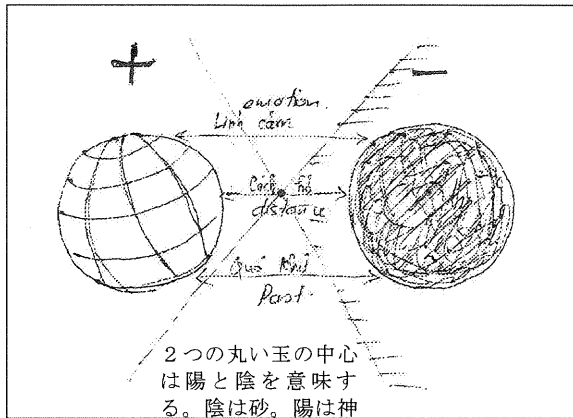 + −
emotion.
Linh cảm
distance
Quá khứ
Past.
2つの丸い玉の中心
は陽と陰を意味す
る。陰は砂。陽は神